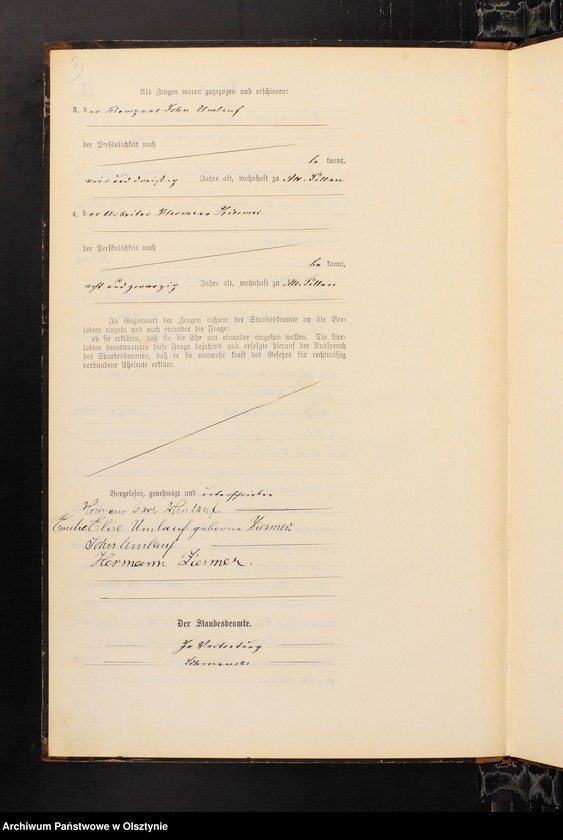 3
Als Zeugen waren zugezogen und erschienen:
3. der John Umlauf
der Persönlichkeit nach
be kannt,
vier und dreißig Jahre alt, wohnhaft zu Alt-Pillau
4. der Arbeiter Hermann Ziermer
der Persönlichkeit nach
be kannt,
acht und zwanzig Jahre alt, wohnhaft zu Alt-Pillau
In Gegenwart der Zeugen richtete der Standesbeamte an die Ver-
lobten einzeln und nach einander die Frage:
ob sie erklären, daß sie die Ehe mit einander eingehen wollen. Die Ver-
lobten beantworteten diese Frage bejahend und erfolgte hierauf der Ausspruch
des Standesbeamten, daß er sie nunmehr kraft des Gesetzes für rechtmäßig
verbundene Eheleute erkläre.
Vorgelesen, genehmigt und unterschrieben
Hermann Carl Umlauf
Emilie Elise Umlauf geborene Ziermer
John Umlauf
Hermann Ziermer.
Der Standesbeamte.
In Vertretung
Archiwum Państwowe w Olsztynie